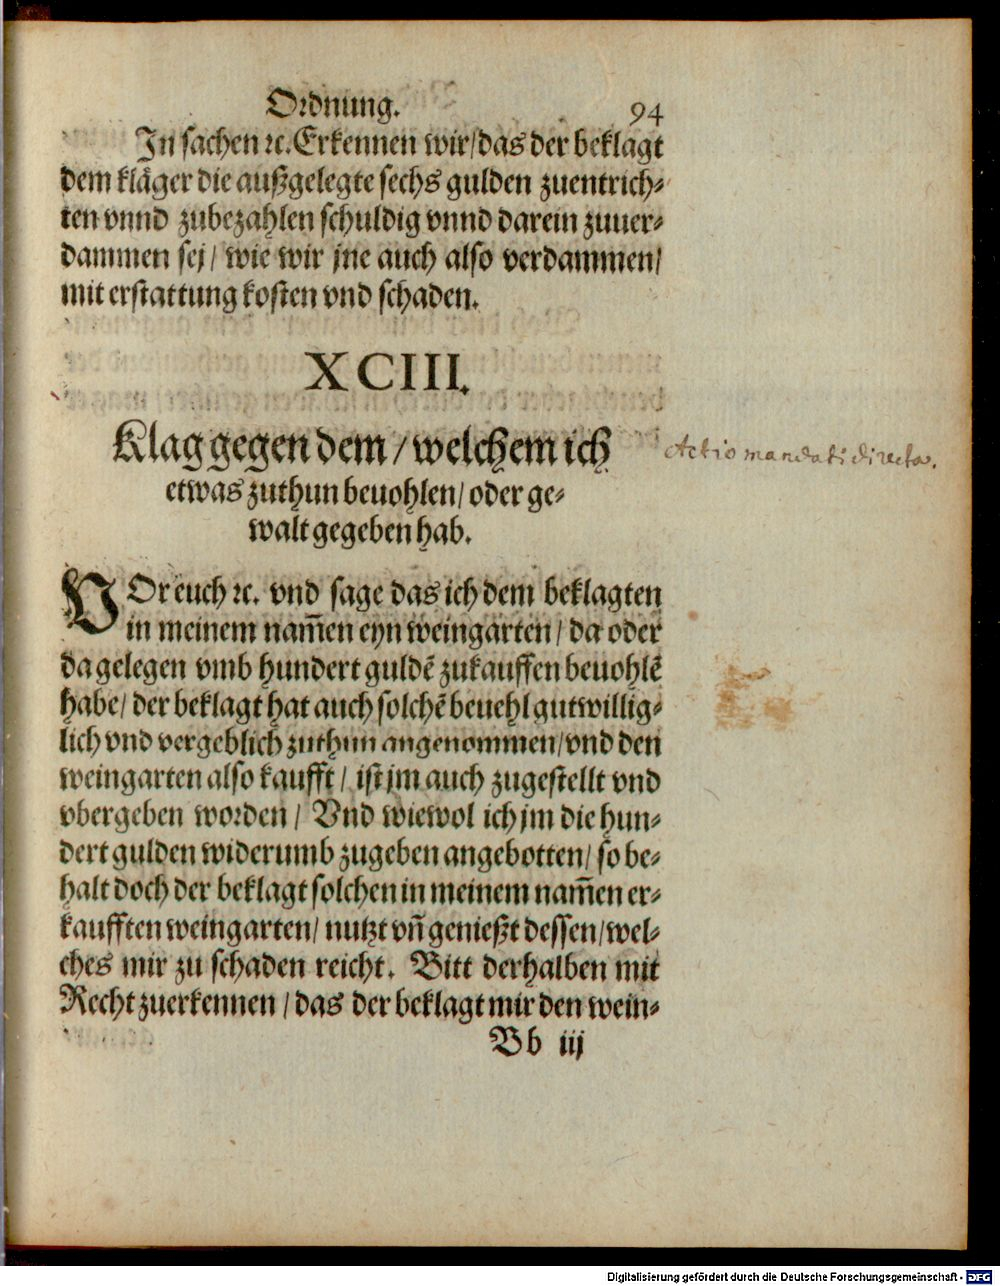 Ordnung. 94
In sachen ꝛc. Erkennen wir/das der beklagt
dem kläger die außgelegte sechs gulden zuentrich⸗
ten vnnd zubezahlen schuldig vnnd darein zuuer⸗
dammen sej/ wie wir jne auch also verdammen/
mit erstattung kosten vnd schaden.
XCIII.
Klag gegen dem/welchem ich
etwas zuthun beuohlen/oder ge⸗
walt gegeben hab.
Actio mandati directa.
VOr euch ꝛc. vnd sage das ich dem beklagten
in meinem nam̃en eyn weingarten/ da oder
da gelegen vmb hundert guldẽ zukauffen beuohlẽ
habe/ der beklagt hat auch solchẽ beuehl gutwillig⸗
lich vnd vergeblich zuthun angenommen/vnd den
weingarten also kaufft/ ist jm auch zugestellt vnd
vbergeben worden/ Vnd wiewol ich jm die hun⸗
dert gulden widerumb zugeben angebotten/ so be⸗
halt doch der beklagt solchen in meinem nam̃en er⸗
kaufften weingarten/ nutzt vñ genießt dessen/wel⸗
ches mir zu schaden reicht. Bitt derhalben mit
Recht zuerkennen/das der beklagt mir den wein⸗
Bb iij
Digitalisierung gefördert durch die Deutsche Forschungsgemeinschaft - DFG